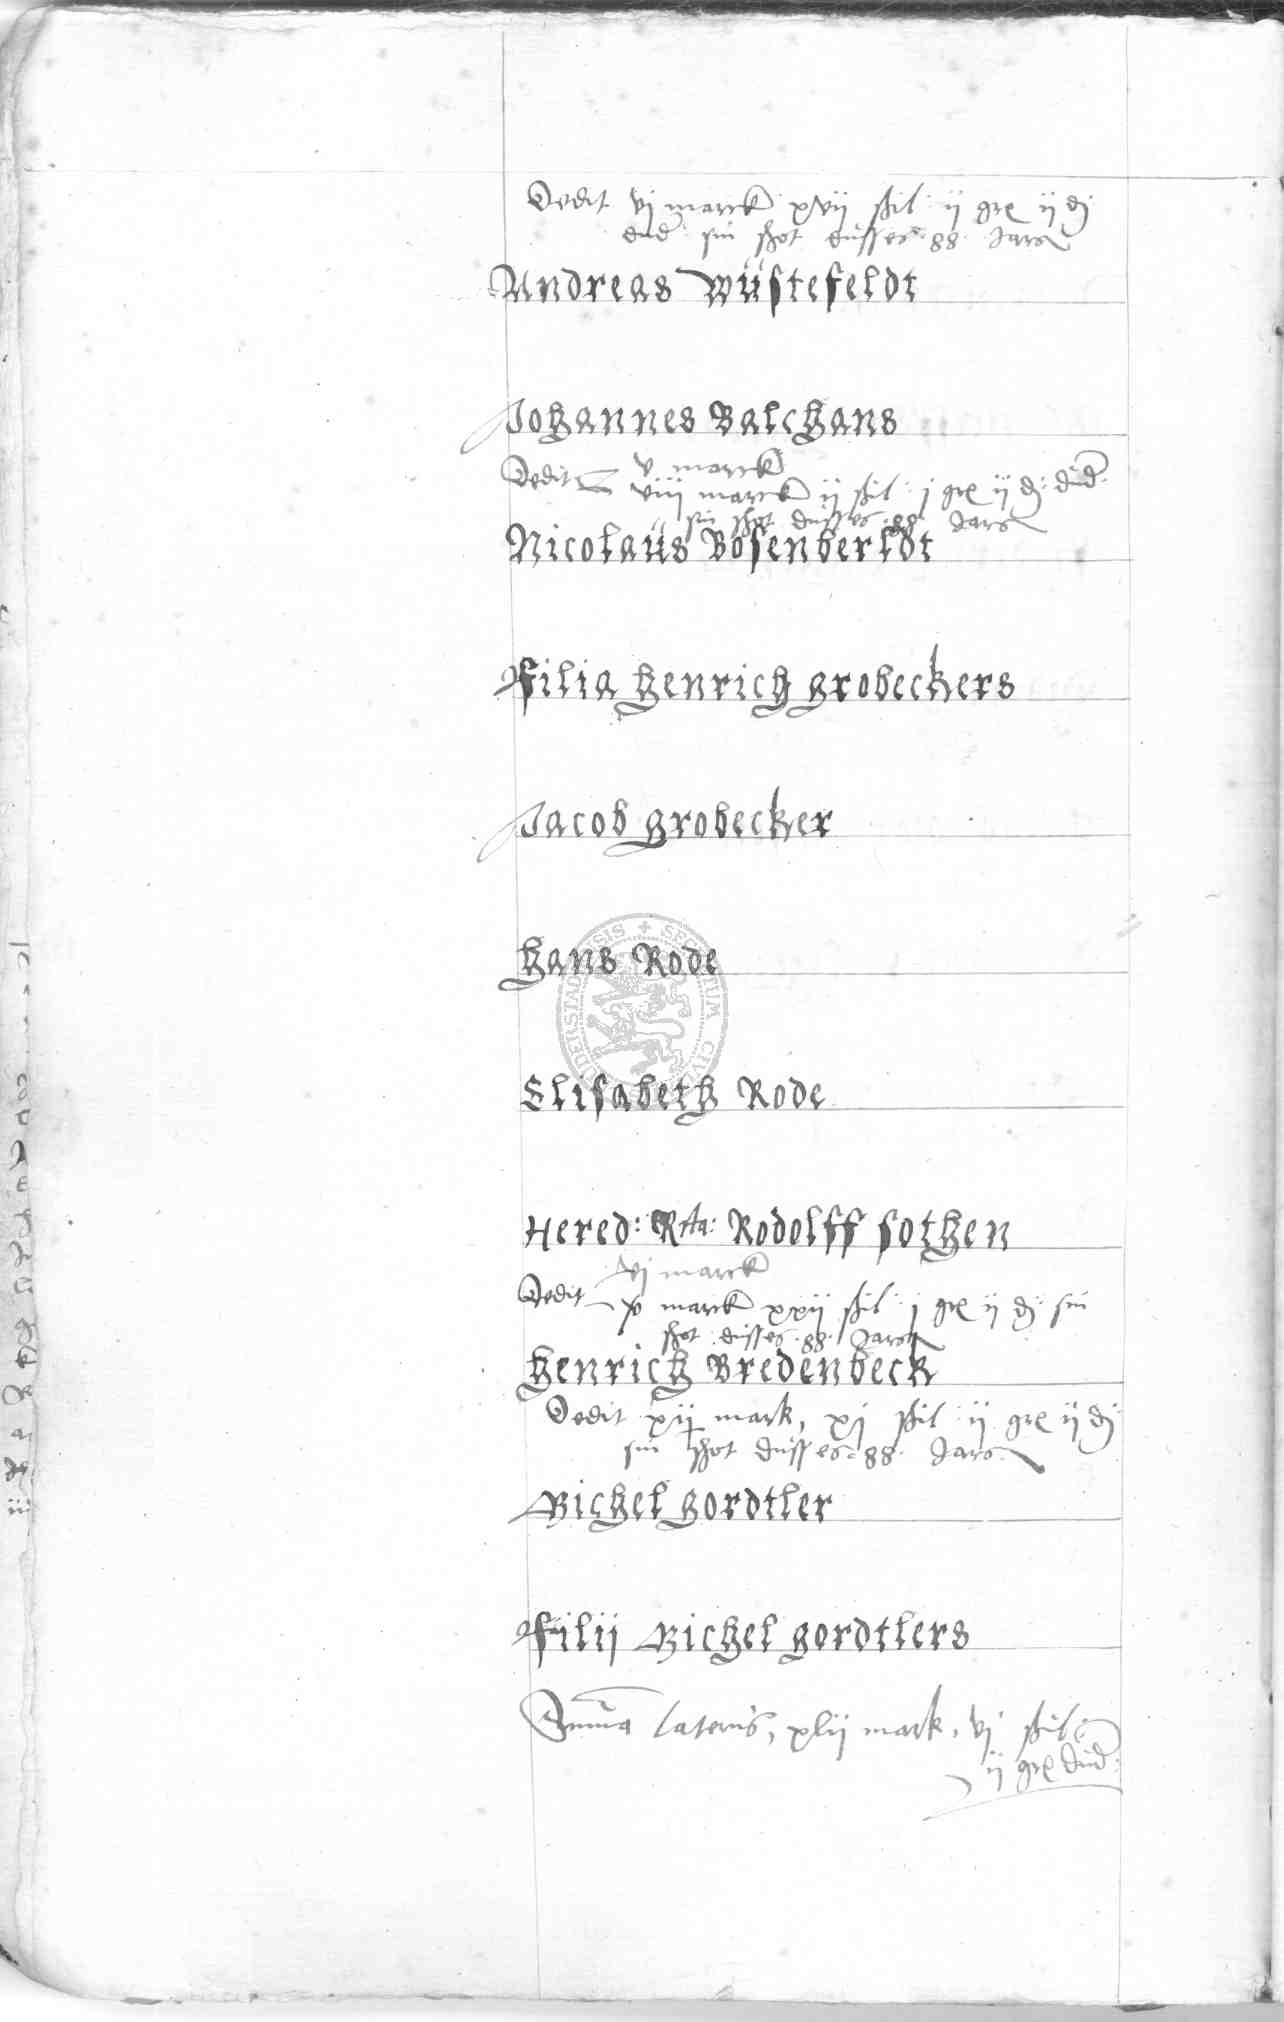 Dedit vj marck xvij ßil: ij gre ij dj
dud sin shot düsses 88 Jars
Andreas Wüstefeldt
Johannes Balchans
v marck
Dedit viij marck ij ßil: j gre ij dj: dud
sin shot düsses 88 Jars
Nicolaüs Bosenberldt
Filia Henrich Grobeckers
Jacob Grobecker
Hans Rode
Elisabeth Rode
Hered: Rta: Rodolff Sothen
vj marck
Dedit v marck xxij ßil: j gre ij dj sin
shot düsses 88 Jars
Henrich Bredenbeck
Dedit xij mark, xj ßil: ij gre ij dj
sin shot düsses 88 Jars
Michel Gordtler
Filij Michel Gordtlers
Summa lateris, xlij mark, vj ßil:
ij gre dud: